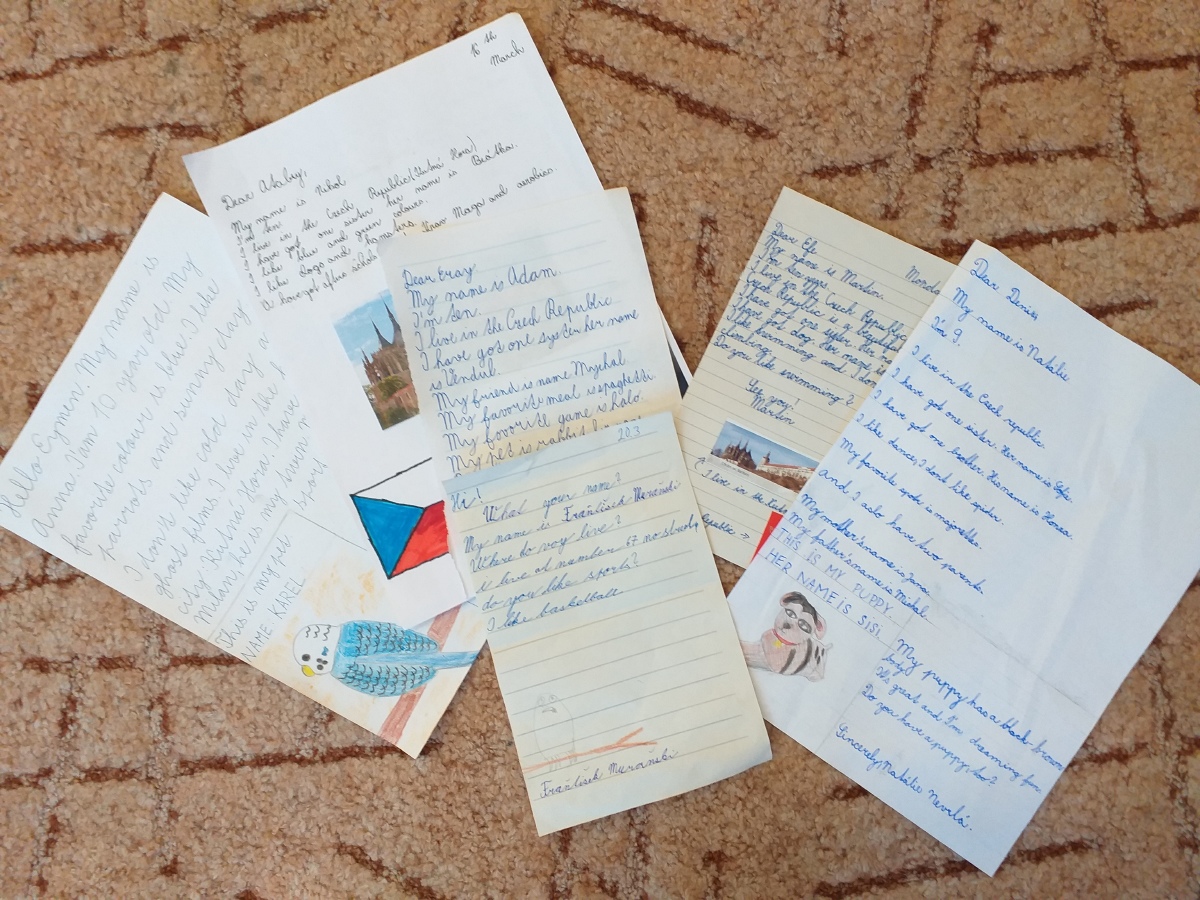 Hello Eymin My name is
Anna. I am 10 year old. My
favorite colour is blue. I like
parrots and sunny day
I don't like cold day a
ghost films. I live in the
city Kutná Hora. I have
Milan. he is my
This is my pet
NAME KAREL
16 th
March
Dear Atabey,
My name is Nikol
I'm ten.
I live in the Czech Republic (Kutná Hora)
I have got one sister her name is Beátka.
I like blue and green colours.
I like dogs and hamsters.
have got after school Krav Maga and aerobics
Dear Eray
My name is Adam.
I'm ten.
I live in the Czech Republic
I have got one system her name
is Vendul.
My friend is name Mychal
My favorite meal is spaghetti.
My fovorite game is halo.
My pet is rabbit
20.3
Hi!
What your name?
My name is František
Where do you live?
I live at number 67
do you like sports?
I like basketball.
František
Dear Efe
Monda
My name is Martin.
I live in the Czech Republic
Czech Republic is a
I have got one
I have got dog. Her name is
I like swimming and
climbing.
Do you like swimming?
See you!
Martin
I live in the
Republic →
Dear Deniss
My name is Natálie
I'm 9.
I live in the Czech republic.
I have got one sister. Her name is Sofie.
I have got one brother. His name is Honza.
I like dance, I dont like spider.
My favorite spots is majorettes.
and I also have two parents.
My mother's name is Jana.
My father's name is Michal.
THIS IS MY PUPPY.
HER NAME IS SISI.
My puppy has a black-brown
body
It's great and I'm dreaming for
Do you have a puppy too?
Sincerely, Natálie Nevrlá.